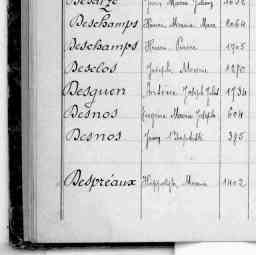 Deschamps Marie Marc 2064
Deschamps Henri Pierre 1705
Desclos Joseph Marie 1270
Desguen Antoine Joseph Jules 1734
Desnos Eugène Marie Joseph 604
Desnos Jean Baptiste 395
Despréaux Hippolyte Marie 1402